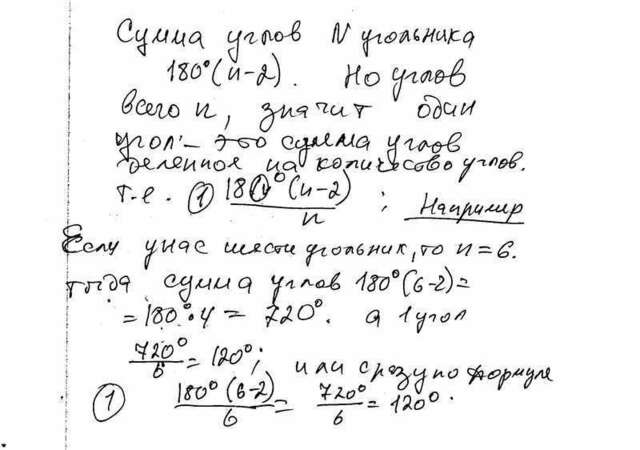 Сумма углов N угольника
180°(n-2). Но углов
всего n, значит один
угол - это сумма углов
деленное на количество углов.
т.е. ① 180°(n-2)/n ; Например
Если у нас шести угольник, то n=6.
тогда сумма углов 180°(6-2)=
=180°·4 = 720°. а 1 угол
720°/6 = 120°; или сразу по формуле
① 180°(6-2)/6 = 720°/6 = 120°.